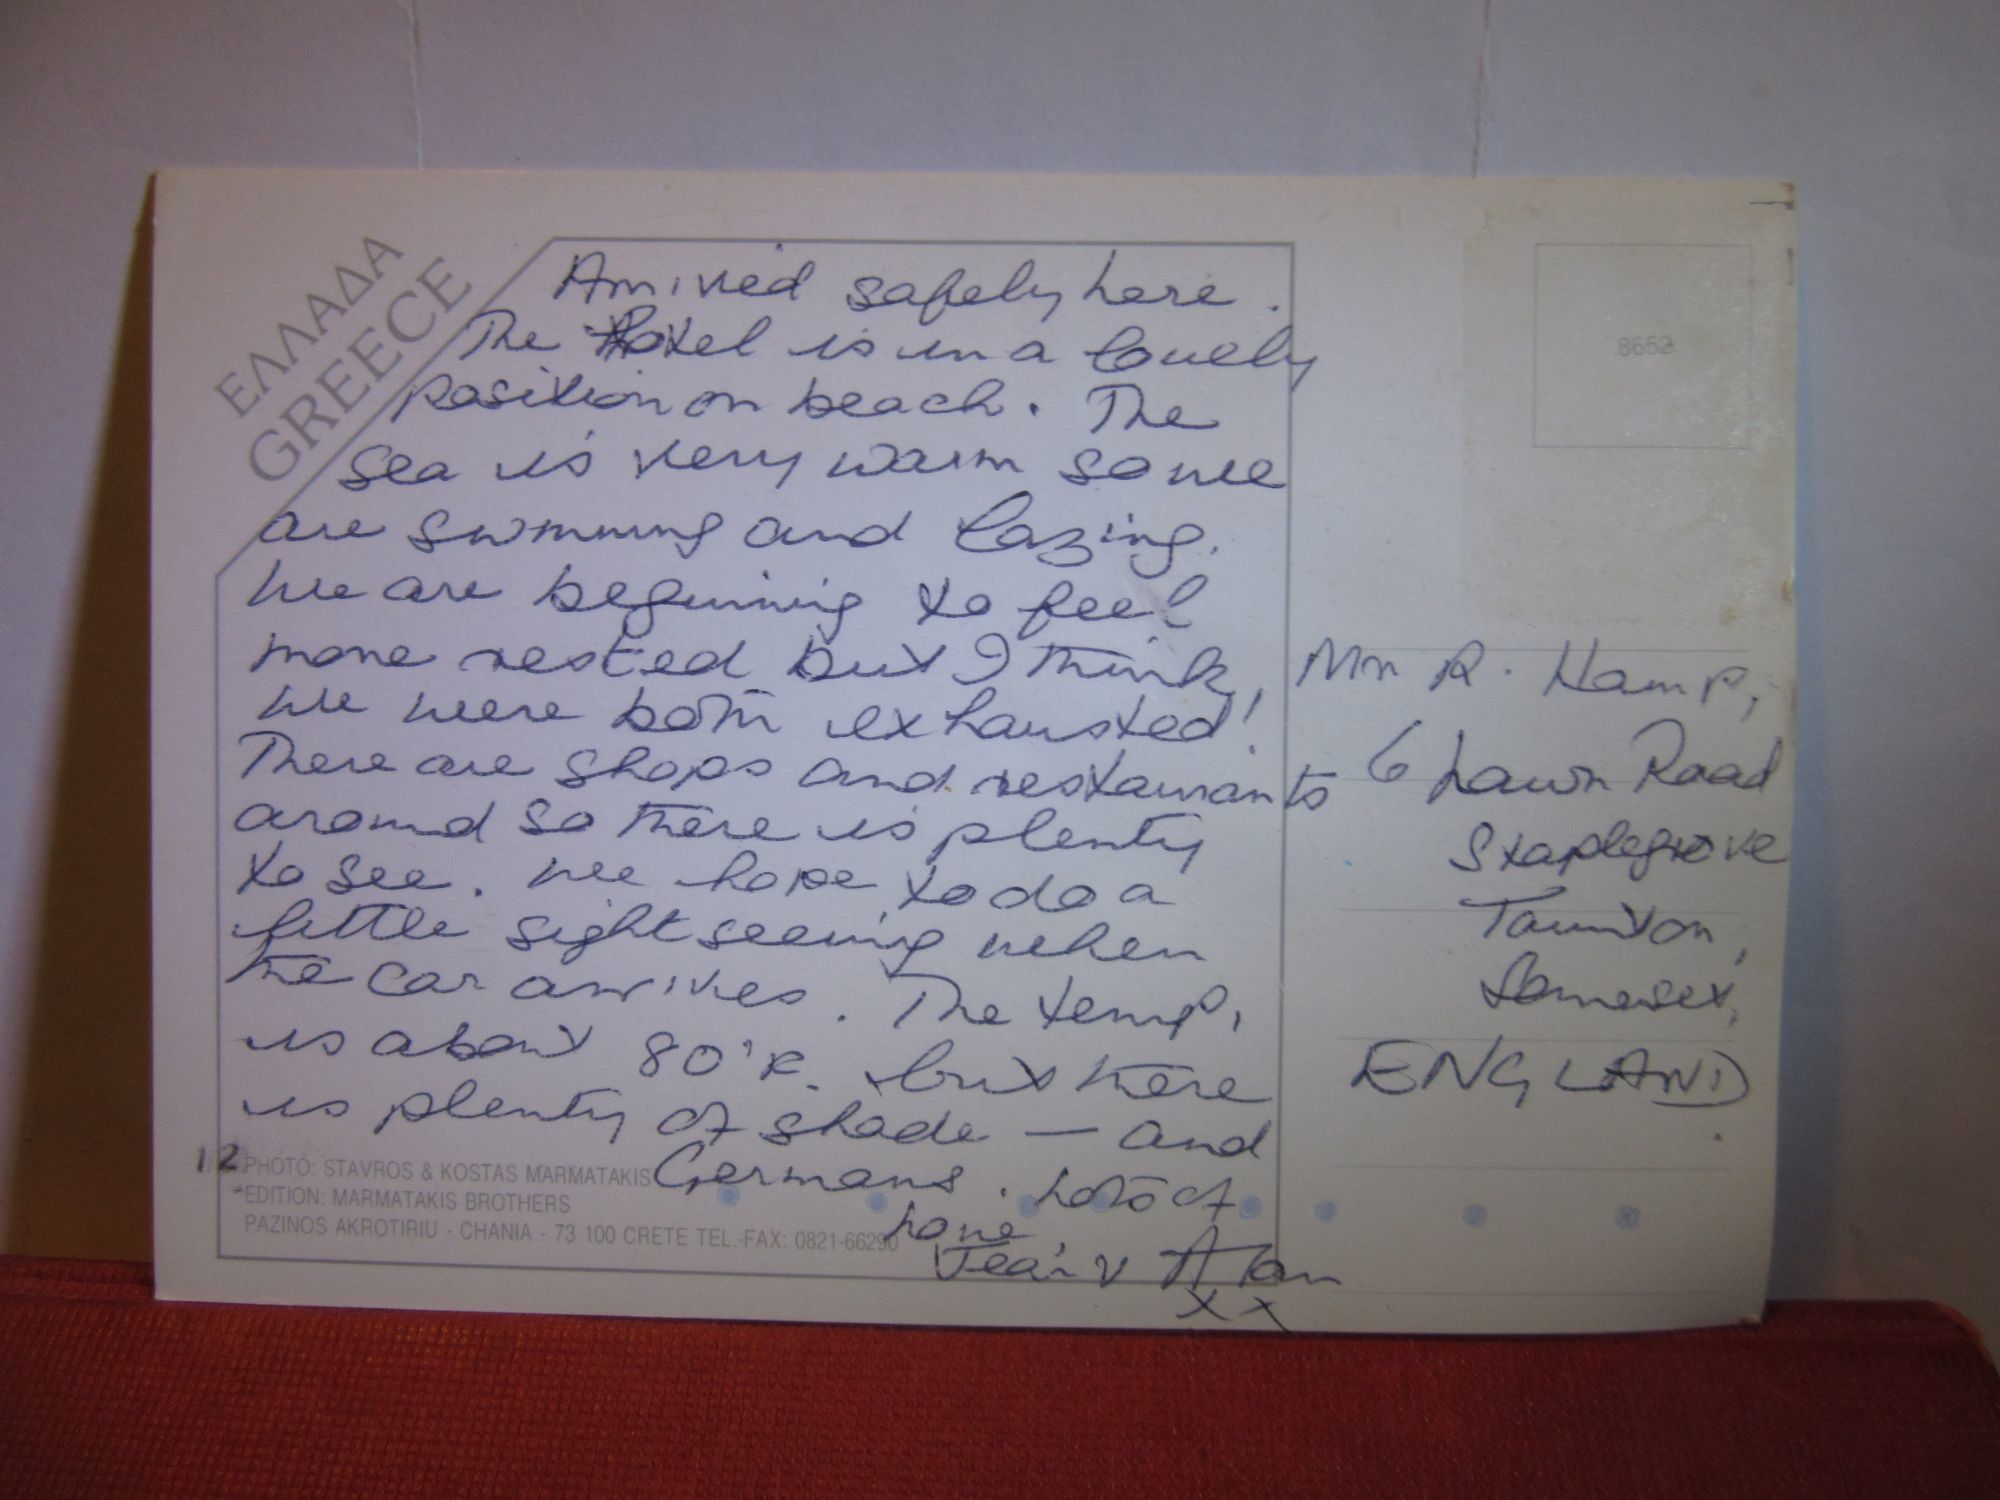 ΕΛΛΑΔΑ
GREECE
Arrived safely here.
The Hotel is in a lovely
position on beach. The
sea is very warm so we
are swimming and lazing.
We are beginning to feel
more rested but I think,
we were both exhausted!
There are shops and restaurants
around so there is plenty
to see. We hope to do a
little sight seeing when
the car arrives. The temp,
is about 80°F. but there
is plenty of shade — and
Germans. Lots of
love
Jean & Alan
x x
12
PHOTO: STAVROS & KOSTAS MARMATAKIS
EDITION: MARMATAKIS BROTHERS
PAZINOS AKROTIRIU - CHANIA - 73 100 CRETE TEL.-FAX: 0821-66290
8652
Mr R. Hamp,
6 Lawn Road
Staplegrove
Taunton,
Somerset,
ENGLAND.